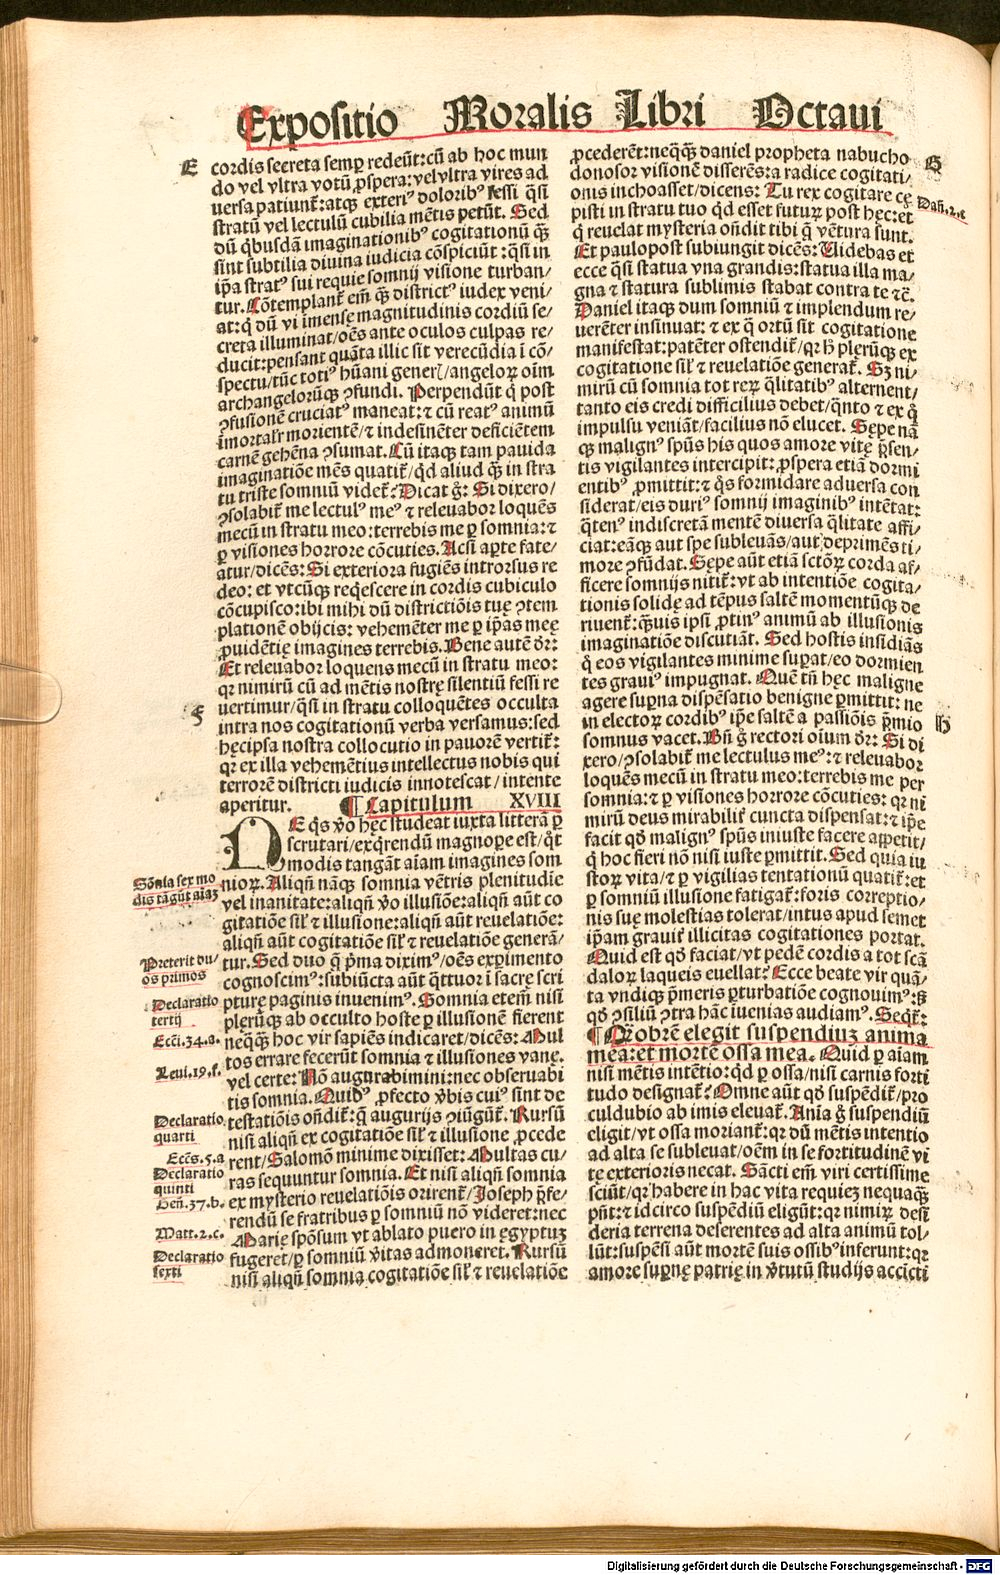 Expositio Moralis Libri Octaui
E
cordis secreta semꝑ redeūt:cū ab hoc mun
do vel vltra votū ꝓspera:vel vltra vires ad
uersa patiunt᷑:atqꝫ exteriꝰ doloribꝰ fessi q̄si
stratū vel lectulū cubilia mētis petūt. Sed
dū q̇busdā imaginationibꝰ cogitationū qꝫ̄
sint subtilia diuina iudicia cōspiciūt :q̄si in
ip̄a stratꝰ sui requie somnij visione turban/
tur. Cōtemplant᷑ em̄ qꝫ̄ districtꝰ iudex veni/
at:q̇ dū vi imensę magnitudinis cordiū se/
creta illuminat/oēs ante oculos culpas re/
ducit:pensant quāta illic sit verecūdia ī cō/
spectu/tūc totiꝰ hūani generꝭ/angeloꝝ oīm
archangeloꝝqꝫ ꝯfundi. Perpendūt q̇ post
ꝯfusionē cruciatꝰ maneat:⁊ cū reatꝰ animū
īmortal'r morientē/⁊ indesinēter deficiētem
carnē gehēna ꝯsumat. Cū itaqꝫ tam pauida
imaginatiōe mēs quatit᷑/qd̄ aliud qꝫ̄ in stra
tu triste somniū videt᷑? Dicat g̊: Si dixero/
ꝯsolabit᷑ me lectulꝰ meꝰ ⁊ releuabor loquēs
mecū in stratu meo:terrebis me ꝑ somnia:⁊
ꝑ visiones horrore cōcuties. Acsi aꝑte fate/
atur/dicēs: Si exteriora fugiēs introrsus re
deo: et vtcūqꝫ reqͥescere in cordis cubiculo
cōcupisco:ibi mihi dū districtiōis tuę ꝯtem
plationē obijcis: vehemēter me ꝑ ip̄as meę
ꝓuidētię imagines terrebis. Bene autē dr̄:
Et releuabor loquens mecū in stratu meo:
qꝛ nimirū cū ad mētis nostrę silentiū fessi re
uertimur/q̄si in stratu colloquētes occulta
intra nos cogitationū verba versamus:sed
hęcipsa nostra collocutio in pauorē vertit᷑:
qꝛ ex illa vehemētius intellectus nobis qui
terrorē districti iudicis innotescat/intente
aperitur. ¶ Capitulum XVIII
F
DE q̇s v̊o hęc studeat iuxta litterā ꝑ
scrutari/exq̇rendū magnopere est/q̇t
modis tangāt aīam imagines som
nioꝝ. Aliqn̄ nāqꝫ somnia vētris plenitudīe
vel inanitate:aliqn̄ v̊o illusiōe:aliqn̄ aūt co
gitatiōe sil' ⁊ illusione:aliqn̄ aūt reuelatiōe:
aliqn̄ aūt cogitatiōe sil' ⁊ reuelatiōe generā/
tur. Sed duo q̄ p̄ma diximꝰ/oēs exꝑimento
cognoscimꝰ:subiūcta aūt q̄ttuor ī sacrę scri
pturę paginis inuenimꝰ. Somnia etem̄ nisi
plerūqꝫ ab occulto hoste ꝑ illusionē fierent
neqꝫ̄qꝫ hoc vir sapiēs indicaret/dicēs: Mul
tos errare fecerūt somnia ⁊ illusiones vanę.
vel certe: Nō augurabimini:nec obseruabi
tis somnia. Quibꝰ ꝓfecto v̊bis cuiꝰ sint de
testatiōis on̄dit᷑:q̄ augurijs ꝯiūgūt᷑. Rursū
nisi aliqn̄ ex cogitatiōe sil' ⁊ illusione ꝓcede
rent/Salomō minime dixisset: Multas cu/
ras sequuntur somnia. Et nisi aliqn̄ somnia
ex mysterio reuelatiōis orirent᷑/Joseph p̄fe/
rendū se fratribus ꝑ somniū nō videret:nec
Marię spōsum vt ablato puero in ęgyptuꝫ
fugeret/ꝑ somniū v̊itas admoneret. Rursū
nisi aliqn̄ somnia cogitatiōe sil' ⁊ reuelatiōe
Sōnia sex mo
dis tāgūt aīaꝫ
Preterit du/
os primos
Declaratio
tertij
Ecci.34.a.
Leui.19.f.
Declaratio
quarti
Eccs̄.5.a
Declaratio
quinti
Gen̄.37.b.
Matt.2.c.
Declaratio
sexti
ꝓcederēt:neqꝫ̄qꝫ daniel propheta nabucho
donosor visionē disserēs:a radice cogitati/
onis inchoasset/dicens: Tu rex cogitare cę
pisti in stratu tuo qd̄ esset futuꝝ post hęc:et
q̇ reuelat mysteria on̄dit tibi q̄ vētura sunt.
Et paulopost subiungit dicēs: Uidebas et
ecce q̄si statua vna grandis:statua illa ma/
gna ⁊ statura sublimis stabat contra te ⁊c̄.
Daniel itaqꝫ dum somniū ⁊ implendum re/
uerēter insinuat: ⁊ ex q̄ ortū sit cogitatione
manifestat:patēter ostendit᷑/qꝛ h̊ plerūqꝫ ex
cogitatione sil' ⁊ reuelatiōe generat᷑. Sꝫ ni/
mirū cū somnia tot reꝝ q̄litatibꝰ alternent/
tanto eis credi difficilius debet/q̄nto ⁊ ex q̄
impulsu veniāt/facilius nō elucet. Sępe nā
qꝫ malignꝰ spūs his quos amore vitę p̄sen/
tis vigilantes intercipit:ꝓspera etiā dormi
entibꝰ ꝓmittit:⁊ q̊s formidare aduersa con
siderat/eis duriꝰ somnij imaginibꝰ intētat:
q̄tenꝰ indiscretā mentē diuersa q̄litate affi/
ciat:eāqꝫ aut spe subleuās/aut deprimēs ti/
more ꝯfūdat. Sępe aūt etiā sctōꝝ corda af/
ficere somnijs nitit᷑:vt ab intentiōe cogita/
tionis solidę ad tēpus saltē momentūqꝫ de
riuent᷑:qꝫ̄uis ipsi ꝓtinꝰ animū ab illusionis
imaginatiōe discutiāt. Sed hostis insidiās
q̊ eos vigilantes minime suꝑat/eo dormien
tes grauiꝰ impugnat. Quē tn̄ hęc maligne
agere suꝑna dispēsatio benigne ꝑmittit: ne
in electoꝝ cordibꝰ ip̄e saltē a passiōis p̄mio
somnus vacet. Bn̄ g̊ rectori oīum dr̄: Si di
xero/ꝯsolabit᷑ me lectulus meꝰ:⁊ releuabor
loquēs mecū in stratu meo:terrebis me per
somnia:⁊ ꝑ visiones horrore cōcuties: qꝛ ni
mirū deus mirabilit᷑ cuncta dispensat:⁊ ip̄e
facit qd̊ malignꝰ spūs iniuste facere appetit/
q̇ hoc fieri nō nisi iuste ꝑmittit. Sed quia iu
stoꝝ vita/⁊ ꝑ vigilias tentationū quatit᷑:et
ꝑ somniū illusione fatigat᷑:foris correptio/
nis suę molestias tolerat/intus apud semet
ip̄am grauit᷑ illicitas cogitationes portat.
Quid est qd̊ faciat/vt pedē cordis a tot scā
daloꝝ laqueis euellat? Ecce beate vir quā/
ta vndiqꝫ p̄meris ꝑturbatiōe cognouimꝰ:sꝫ
qd̊ ꝯsiliū ꝯtra hāc iuenias audiamꝰ. Seqͥt᷑:
¶ Quāobrē elegit suspendiuꝫ anima
mea:et mortē ossa mea. Quid ꝑ aīam
nisi mētis intētio:qd̄ ꝑ ossa/nisi carnis forti
tudo designat᷑? Omne aūt qd̊ suspēdit᷑/pro
culdubio ab imis eleuat᷑. Anīa g̊ suspendiū
eligit/vt ossa moriant᷑:qꝛ dū mētis intentio
ad alta se subleuat/oēm in se fortitudinē vi
tę exterioris necat. Sācti em̄ viri certissime
sciūt/qꝛ habere in hac vita requieꝫ nequaqꝫ̄
pn̄t:⁊ idcirco suspēdiū eligūt:qꝛ nimiꝝ desi
deria terrena deserentes ad alta animū tol/
lūt:suspēsi aūt mortē suis ossibꝰ inferunt:qꝛ
amore suꝑnę patrię in v̊tutū studijs accīcti
G
Dań.2.f
H
Digitalisierung gefördert durch die Deutsche Forschungsgemeinschaft - DFG